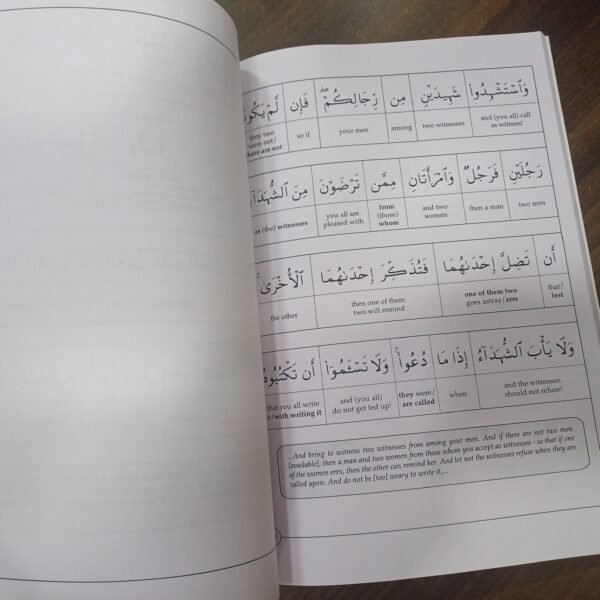 وَٱسْتَشْهِدُوا۟ شَهِيدَيْنِ مِن رِّجَالِكُمْ ۖ فَإِن لَّمْ يَكُونَا
and (you all) call as witness! two witnesses among your men so if they two were not/ there are not
رَجُلَيْنِ فَرَجُلٌ وَٱمْرَأَتَانِ مِمَّن تَرْضَوْنَ مِنَ ٱلشُّهَدَآءِ
two men then a man and two women from (those) whom you all are pleased with as (the) witnesses
أَن تَضِلَّ إِحْدَىٰهُمَا فَتُذَكِّرَ إِحْدَىٰهُمَا ٱلْأُخْرَىٰ ۚ
that/ lest one of them two goes astray/ errs then one of them two will remind the other
وَلَا يَأْبَ ٱلشُّهَدَآءُ إِذَا مَا دُعُوا۟ ۚ وَلَا تَسْـَٔمُوٓا۟ أَن تَكْتُبُوهُ
and the witnesses should not refuse! when they were/ are called and (you all) do not get fed up! that you all write it/ with writing it
...And bring to witness two witnesses from among your men. And if there are not two men
[available], then a man and two women from those whom you accept as witnesses - so that if one
of the women errs, then the other can remind her. And let not the witnesses refuse when they are
called upon. And do not be [too] weary to write it,...